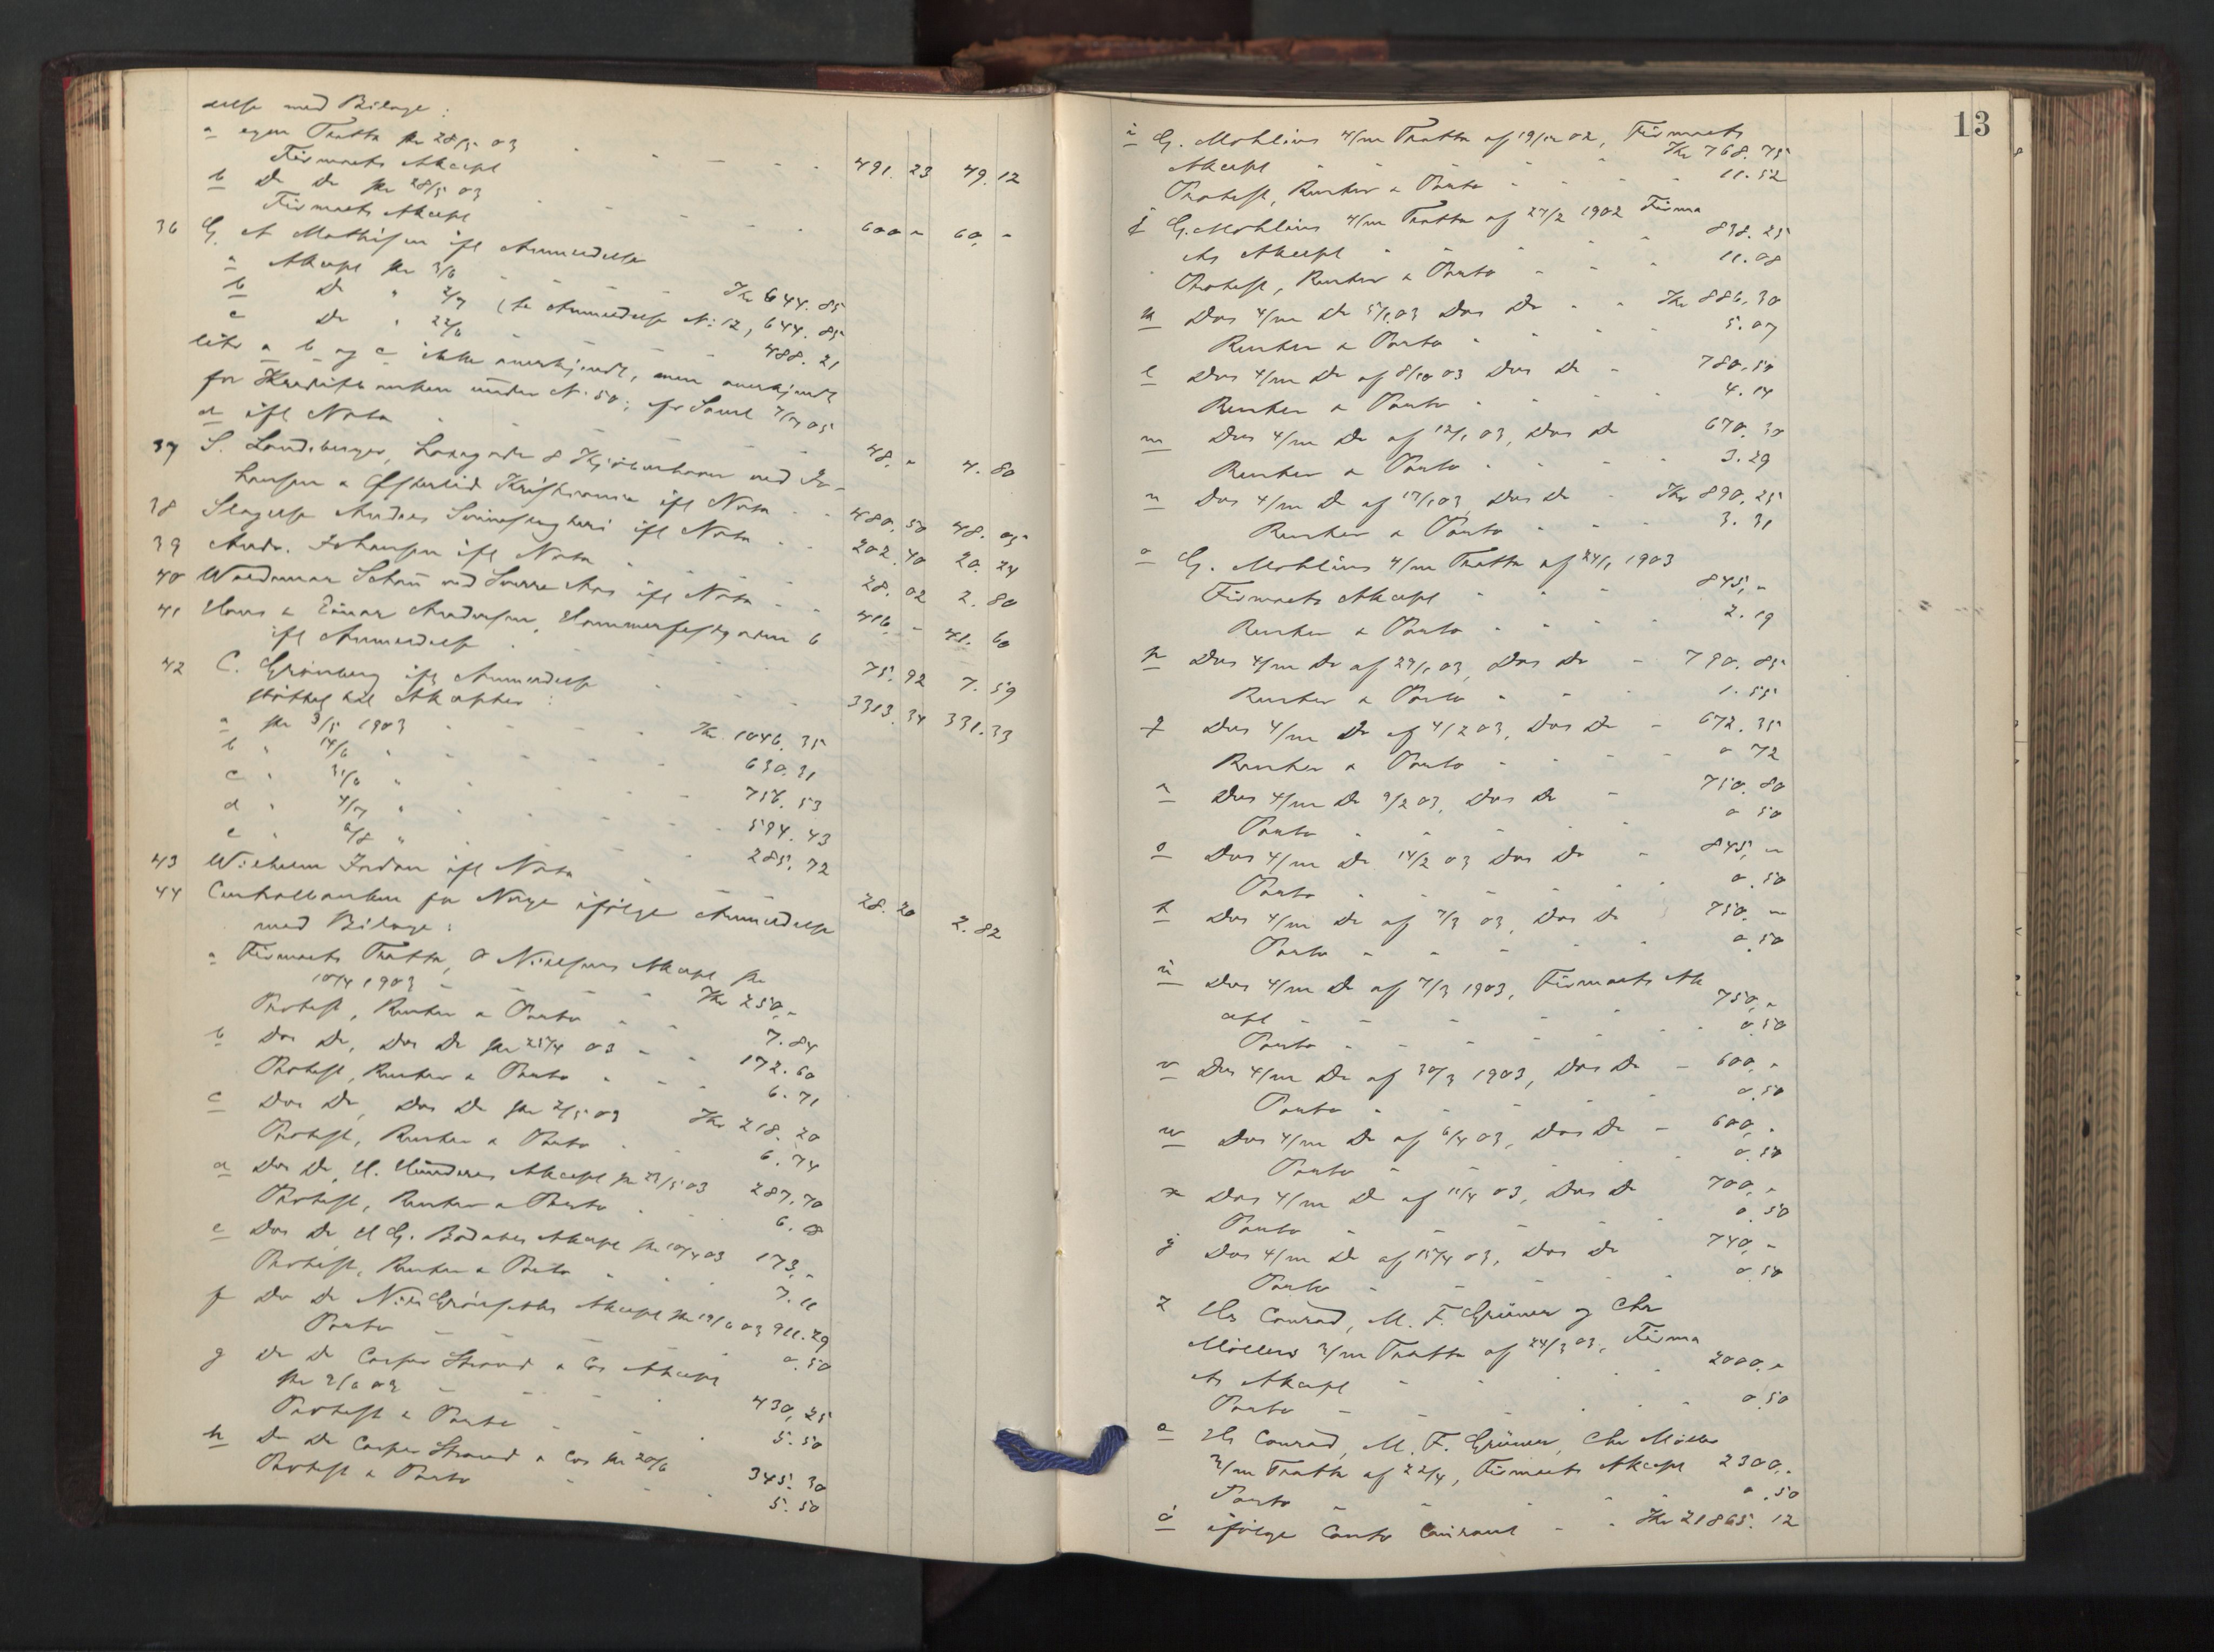 delse med Bilage:
a egen Tratta pr 28/5 03
Firmaets Akcept - - - 491.23 49.12
b Do Do pr 28/5 03
Firmaets Akcept - - - 600 " 60. "
36 G. A. Mathisen ifl Anmeldelse
a Akcept pr 3/6 - - - Kr 644.85
b Do " 2/7 (se Anmeldelse N: 12, 644.85
c Do " 22/6 - - 488.21
litr a b og c ikke anerkjendt, men anerkjendt
for Kreditbanken under N. 50;
d ifl Nota - - - 48. " 4.80
37 S. Landsberger, 8 Kjøbenhavn ved Jo-
hansen & Kristiania ifl Nota - - 480.50 48.05
38 Slagelse Andels Svineslagteri ifl Nota - - 202.40 20.24
39 Andr. Johansen ifl Nota - - 28.02 2.80
40 Waldemar Schou ved Sverre Aas ifl Nota - - 416. - 41.60
41 Hans & Einar Andersen, Hammerfestgaten 6
ifl Anmeldelse - - - 75.92 7.59
42 C. Grönberg ifl Anmeldelse - - - 3313.34 331.33
støttet til Akcepter:
a pr 3/5 1903 - - - Kr 1046.35
b " 14/6 " - - - 630.31
c " 31/6 " - - - 756.53
d " 4/7 " - - - 594.43
e " 2/8 " - - - 285.72
43 Wilhelm Jordan ifl Nota - - 28.20 2.82
44 Centralbanken for Norge ifølge Anmeldelse
med Bilage:
a Firmaets Tratta, O Nielsens Akcept pr
10/4 1903 - - - Kr 250, -
Protest, Renter & Porto - - 7.84
b Dos Do, Dos Do pr 25/4 03 - - 172.60
Protest, Renter & Porto - - 6.71
c Dos Do, Dos Do pr 2/5 03 Kr 218.20
Protest, Renter & Porto - 6.74
d Dos Do, Akcept pr 23/5 03 287.70
Protest, Renter & Porto - 6.18
e Dos Do Akcept pr 10/4 03 173, -
Protest, Renter & Porto - - 7.11
f Do Do Akcept pr 19/6 03 911.29
Porto - - - 0.50
g Do Do Casper Strand & Cos Akcept
pr 2/6 03 - - - 430,25
Protest & Porto - - 5.50
h Do Do Casper Strand & Cos pr 20/6 345.30
Protest & Porto - - 5.50
13
i G. Mohlins 4/m Tratta af 19/12 02, Firmaets
Akcept - - - Kr 768.75
Protest, Renter & Porto - - 11.52
j G. Mohlins 4/m Tratta af 27/2 1902 Firma
ets Akcept - - - 838.25
Protest, Renter & Porto - - 11.08
k Dos 4/m Do 5/1 03 Dos Do - - Kr 886.30
Renter & Porto - - 5.07
l Dos 4/m Do af 8/10 03 Dos Do - 780.50
Renter & Porto - - 4.14
m Dos 4/m Do af 12/1 03, Dos Do 670.30
Renter & Porto - - 3.29
n Dos 4/m Do af 17/1 03, Dos Do - Kr 890.25
Renter & Porto - - 3.31
o G. Mohlins 4/m Tratta af 24/1 1903
Firmaets Akcept - - 845, -
Renter & Porto - - 2.19
p Dos 4/m Do af 29/1 03, Dos Do - 790.85
Renter & Porto - - 1.55
q Dos 4/m Do af 4/2 03, Dos Do - 672.35
Renter & Porto - - 0 72
r Dos 4/m Do 9/2 03, Dos Do - 750.80
Porto - - - 0 50
s Dos 4/m Do 14/2 03 Dos Do - 845, -
Porto - - - 0.50
t Dos 4/m Do af 7/3 03, Dos Do 750. -
Porto - - - 0.50
u Dos 4/m Do af 7/3 1903, Firmaets Ak
cept - - - 750, -
Porto - - - 0.50
v Dos 4/m Do af 30/3 1903, Dos Do - 600, -
Porto - - - 0.50
w Dos 4/m Do af 6/4 03, Dos Do - 600, -
Porto - - - 0.50
x Dos 4/m Do af 11/4 03, Dos Do 700, -
Porto - - - 0.50
y Dos 4/m Do af 15/4 03, Dos Do 740, -
Porto - - - 0.50
z Conrad, M. F. Grüner og Chr
Møllers 3/m Tratta af 24/3 03, Firma
ets Akcept - - - 2000. -
Porto - - - 0.50
æ Conrad, M. F. Grüner, Chr Møllers
3/m Tratta af 22/4, Firmaets Akcept 2300, -
Porto - - - 0.50
ø ifølge Conto Courant - - Kr 21865.12